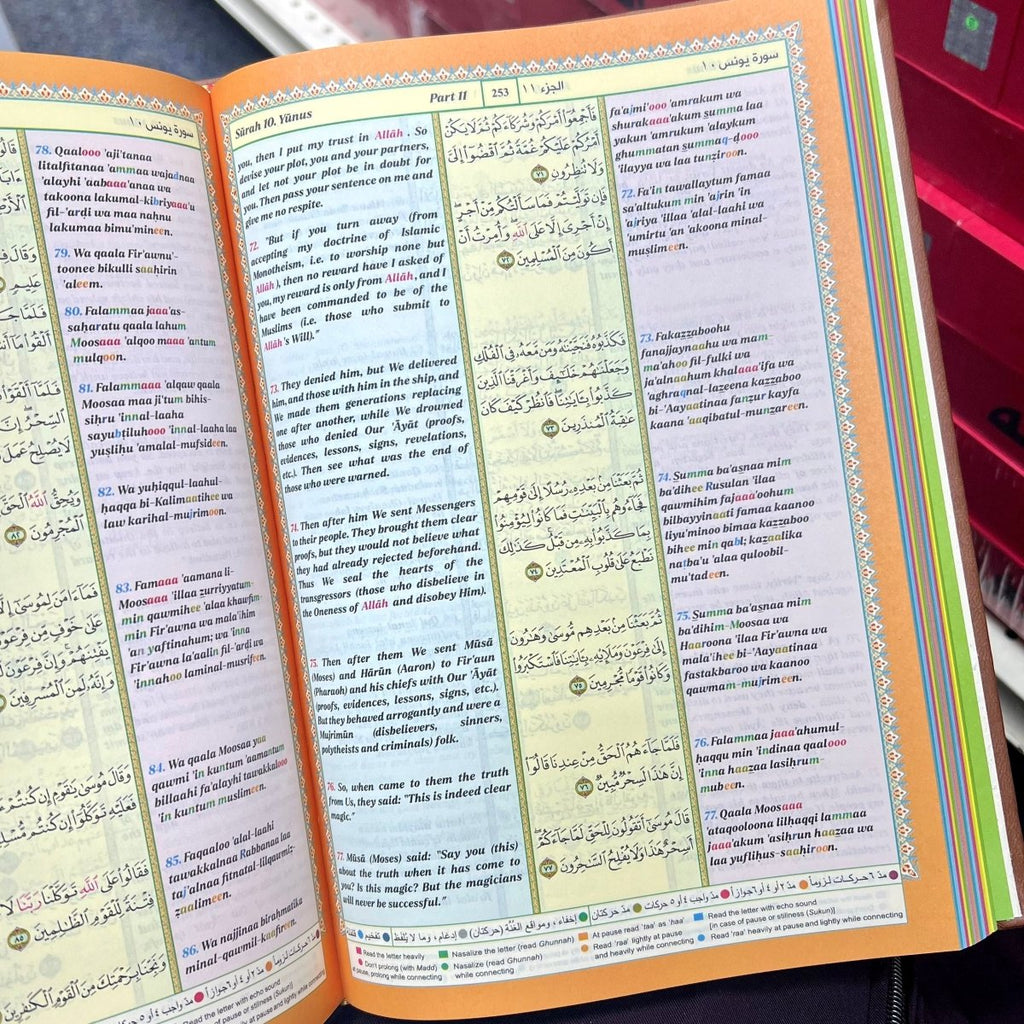 سورة يونس ١٠
78. Qaalooo 'aji'tanaa
litalfitanaa 'ammaa wajadnaa
'alayhi 'aabaaa'anaa wa
takoona lakumal-kibriyaaa'u
fil-'arḍi wa maa naḥnu
lakumaa bimu'mineen.
79. Wa qaala Fir'awnu'-
toonee bikulli saaḥirin
'aleem.
80. Falammaa jaaa'as-
saḥaratu qaala lahum
Moosaaa 'alqoo maaa 'antum
mulqoon.
81. Falammaaa 'alqaw qaala
Moosaa maa ji'tum bihis-
siḥru 'innal-laaha
sayubṭiluhooo 'innal-laaha laa
yuṣliḥu 'amalal-mufsideen.
82. Wa yuḥiqqul-laahul-
ḥaqqa bi-Kalimaatihee wa
law karihal-mujrimoon.
83. Famaaa 'aamana li-
Moosaaa 'illaa ẓurriyyatum-
min qawmihee 'alaa khawfim-
min Fir'awna wa mala'ihim
'an yaftinahum; wa 'inna
Fir'awna la'aalin fil-'arḍi wa
'innahoo laminal-musrifeen.
84. Wa qaala Moosaa yaa
qawmi 'in kuntum 'aamantum
billaahi fa'alayhi tawakkalooo
'in kuntum muslimeen.
85. Faqaaloo 'alal-laahi
tawakkalnaa Rabbanaa laa
taj'alnaa fitnatal-lilqawmiẓ-
ẓaalimeen.
86. Wa najjinaa biraḥmatika
minal-qawmil-kaafireen.
Sûrah 10. Yûnus
Part 11
253
الجزء ١١
سورة يونس ١٠
you, then I put my trust in Allâh . So
devise your plot, you and your partners,
and let not your plot be in doubt for
you. Then pass your sentence on me and
give me no respite.
72. "But if you turn away (from
accepting my doctrine of Islamic
Monotheism, i.e. to worship none but
Allâh ), then no reward have I asked of
you, my reward is only from Allâh, and I
have been commanded to be of the
Muslims (i.e. those who submit to
Allâh's Will)."
73. They denied him, but We delivered
him, and those with him in the ship, and
We made them generations replacing
one after another, while We drowned
those who denied Our 'Âyât (proofs,
evidences, lessons, signs, revelations,
etc.). Then see what was the end of
those who were warned.
74. Then after him We sent Messengers
to their people. They brought them clear
proofs, but they would not believe what
they had already rejected beforehand.
Thus We seal the hearts of the
transgressors (those who disbelieve in
the Oneness of Allâh and disobey Him).
75. Then after them We sent Mûsâ
(Moses) and Hârûn (Aaron) to Fir'aun
(Pharaoh) and his chiefs with Our 'Âyât
(proofs, evidences, lessons, signs, etc.).
But they behaved arrogantly and were a
Mujrimûn (disbelievers, sinners,
polytheists and criminals) folk.
76. So, when came to them the truth
from Us, they said: "This is indeed clear
magic."
77. Mûsâ (Moses) said: "Say you (this)
about the truth when it has come to
you? Is this magic? But the magicians
will never be successful."
فَأَجْمِعُوا أَمْرَكُمْ وَشُرَكَاءَكُمْ ثُمَّ لَا يَكُنْ
أَمْرُكُمْ عَلَيْكُمْ غُمَّةً ثُمَّ اقْضُوا إِلَيَّ
وَلَا تُنظِرُونِ ٧١
فَإِن تَوَلَّيْتُمْ فَمَا سَأَلْتُكُم مِّنْ أَجْرٍ
إِنْ أَجْرِيَ إِلَّا عَلَى اللَّهِ وَأُمِرْتُ أَنْ
أَكُونَ مِنَ الْمُسْلِمِينَ ٧٢
فَكَذَّبُوهُ فَنَجَّيْنَاهُ وَمَن مَّعَهُ فِي الْفُلْكِ
وَجَعَلْنَاهُمْ خَلَائِفَ وَأَغْرَقْنَا الَّذِينَ
كَذَّبُوا بِآيَاتِنَا فَانظُرْ كَيْفَ كَانَ
عَاقِبَةُ الْمُنذَرِينَ ٧٣
ثُمَّ بَعَثْنَا مِن بَعْدِهِ رُسُلًا إِلَىٰ قَوْمِهِمْ
فَجَاءُوهُم بِالْبَيِّنَاتِ فَمَا كَانُوا لِيُؤْمِنُوا
بِمَا كَذَّبُوا بِهِ مِن قَبْلُ كَذَٰلِكَ
نَطْبَعُ عَلَىٰ قُلُوبِ الْمُعْتَدِينَ ٧٤
ثُمَّ بَعَثْنَا مِن بَعْدِهِم مُّوسَىٰ وَهَارُونَ
إِلَىٰ فِرْعَوْنَ وَمَلَئِهِ بِآيَاتِنَا فَاسْتَكْبَرُوا
وَكَانُوا قَوْمًا مُّجْرِمِينَ ٧٥
فَلَمَّا جَاءَهُمُ الْحَقُّ مِنْ عِندِنَا قَالُوا
إِنَّ هَٰذَا لَسِحْرٌ مُّبِينٌ ٧٦
قَالَ مُوسَىٰ أَتَقُولُونَ لِلْحَقِّ لَمَّا جَاءَكُمْ
أَسِحْرٌ هَٰذَا وَلَا يُفْلِحُ السَّاحِرُونَ ٧٧
fa'ajmi'ooo 'amrakum wa
shurakaaa'akum ṣumma laa
yakun 'amrukum 'alaykum
ghummatan ṣummaq-ḍooo
'ilayya wa laa tunẓiroon.
72. Fa'in tawallaytum famaa
sa'altukum min 'ajrin 'in
'ajriya 'illaa 'alal-laahi wa
'umirtu 'an 'akoona minal-
muslimeen.
73. Fakaẓẓaboohu
fanajjaynaahu wa mam-
ma'ahoo fil-fulki wa
ja'alnaahum khalaaa'ifa wa
'aghraqnal-laẓeena kaẓẓaboo
bi-'Aayaatinaa fanẓur kayfa
kaana 'aaqibatul-munẓareen.
74. Ṣumma ba'aṣnaa mim
ba'dihee Rusulan 'ilaa
qawmihim fajaaa'oohum
bilbayyinaati famaa kaanoo
liyu'minoo bimaa kaẓẓaboo
bihee min qabl; kaẓaalika
naṭba'u 'alaa quloobil-
mu'tadeen.
75. Ṣumma ba'aṣnaa mim
ba'dihim-Moosaa wa
Haaroona 'ilaa Fir'awna wa
mala'ihee bi-'Aayaatinaa
fastakbaroo wa kaanoo
qawmam-mujrimeen.
76. Falammaa jaaa'ahumul-
ḥaqqu min 'indinaa qaalooo
'inna haaẓaa lasiḥrum-
mubeen.
77. Qaala Moosaaa
'ataqooloona lilḥaqqi lammaa
jaaa'akum 'asiḥrun haaẓaa wa
laa yufliḥus-saaḥiroon.
مدّ ٦ حركات لزوماً مدّ ٢ أو ٤ أو ٦ جوازاً مدّ واجب ٤ أو ٥ حركات مدّ حركتان إخفاء، ومواقع الغنّة (حركتان) إدغام، وما لا يُلفظ تفخيم قلقلة
Read the letter heavily
Don't prolong (with Madd)
at pause, prolong while connecting
Nasalize the letter (read Ghunnah)
Nasalize (read Ghunnah)
while connecting
At pause read 'taa' as 'haa'
Read 'raa' lightly at pause
and heavily while connecting
Read the letter with echo sound
[in case of pause or stillness (Sukun)]
Read 'raa' heavily at pause and lightly while connecting